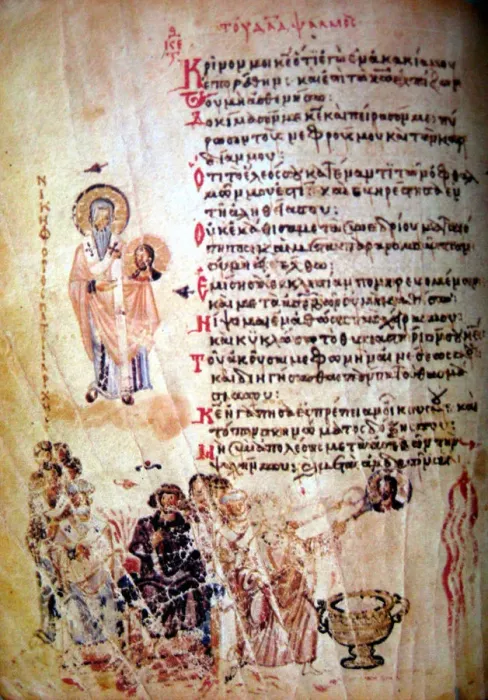 ΤΟΥ ΔΑΔ ΨΑΛΜΟΣ
Κρῖνόν μοι κε ὅτι ἐγὼ ἐν ἀκακία μου
ἐπορεύθην· καὶ ἐπὶ τῷ κω ἐλπίζων
οὐ μὴ ἀσθενήσω:
Δοκίμασόν με κε καὶ πείρασόν με· πύ
ρωσον τοὺς νεφρούς μου καὶ τὴν καρ
δίαν μου:
Ὅτι τὸ ἔλεός σου κατέναντι τῶν ὀφθαλ
μῶν μου ἐστί· καὶ εὐηρέστησα ἐν
τῇ ἀληθεία σου:
Οὐκ ἐκάθισα μετὰ συνεδρίου ματαιό
τητος· καὶ μετὰ παρανομούντων
οὐ μὴ εἰσέλθω:
Ἐμίσησα ἐκκλησίαν πονηρευομένων
καὶ μετὰ ἀσεβῶν οὐ μὴ καθίσω:
Νίψομαι ἐν ἀθώοις τὰς χεῖρας μου·
καὶ κυκλώσω τὸ θυσιαστήριόν σου κε
Τοῦ ἀκοῦσαί με φωνῆς αἰνέσεώς σου
καὶ διηγήσασθαι πάντα τὰ θαυμά
σιά σου:
Κε ἠγάπησα εὐπρέπειαν οἴκου σου· καὶ
τόπον σκηνώματος δόξης σου:
Μὴ συναπολέσης μετὰ ἀσεβῶν τὴν
ψυχήν μου· καὶ μετὰ ἀνδρῶν
ΝΙΚΗΦΟΡΟΣ ΠΑΤΡΙΑΡΧΗΣ